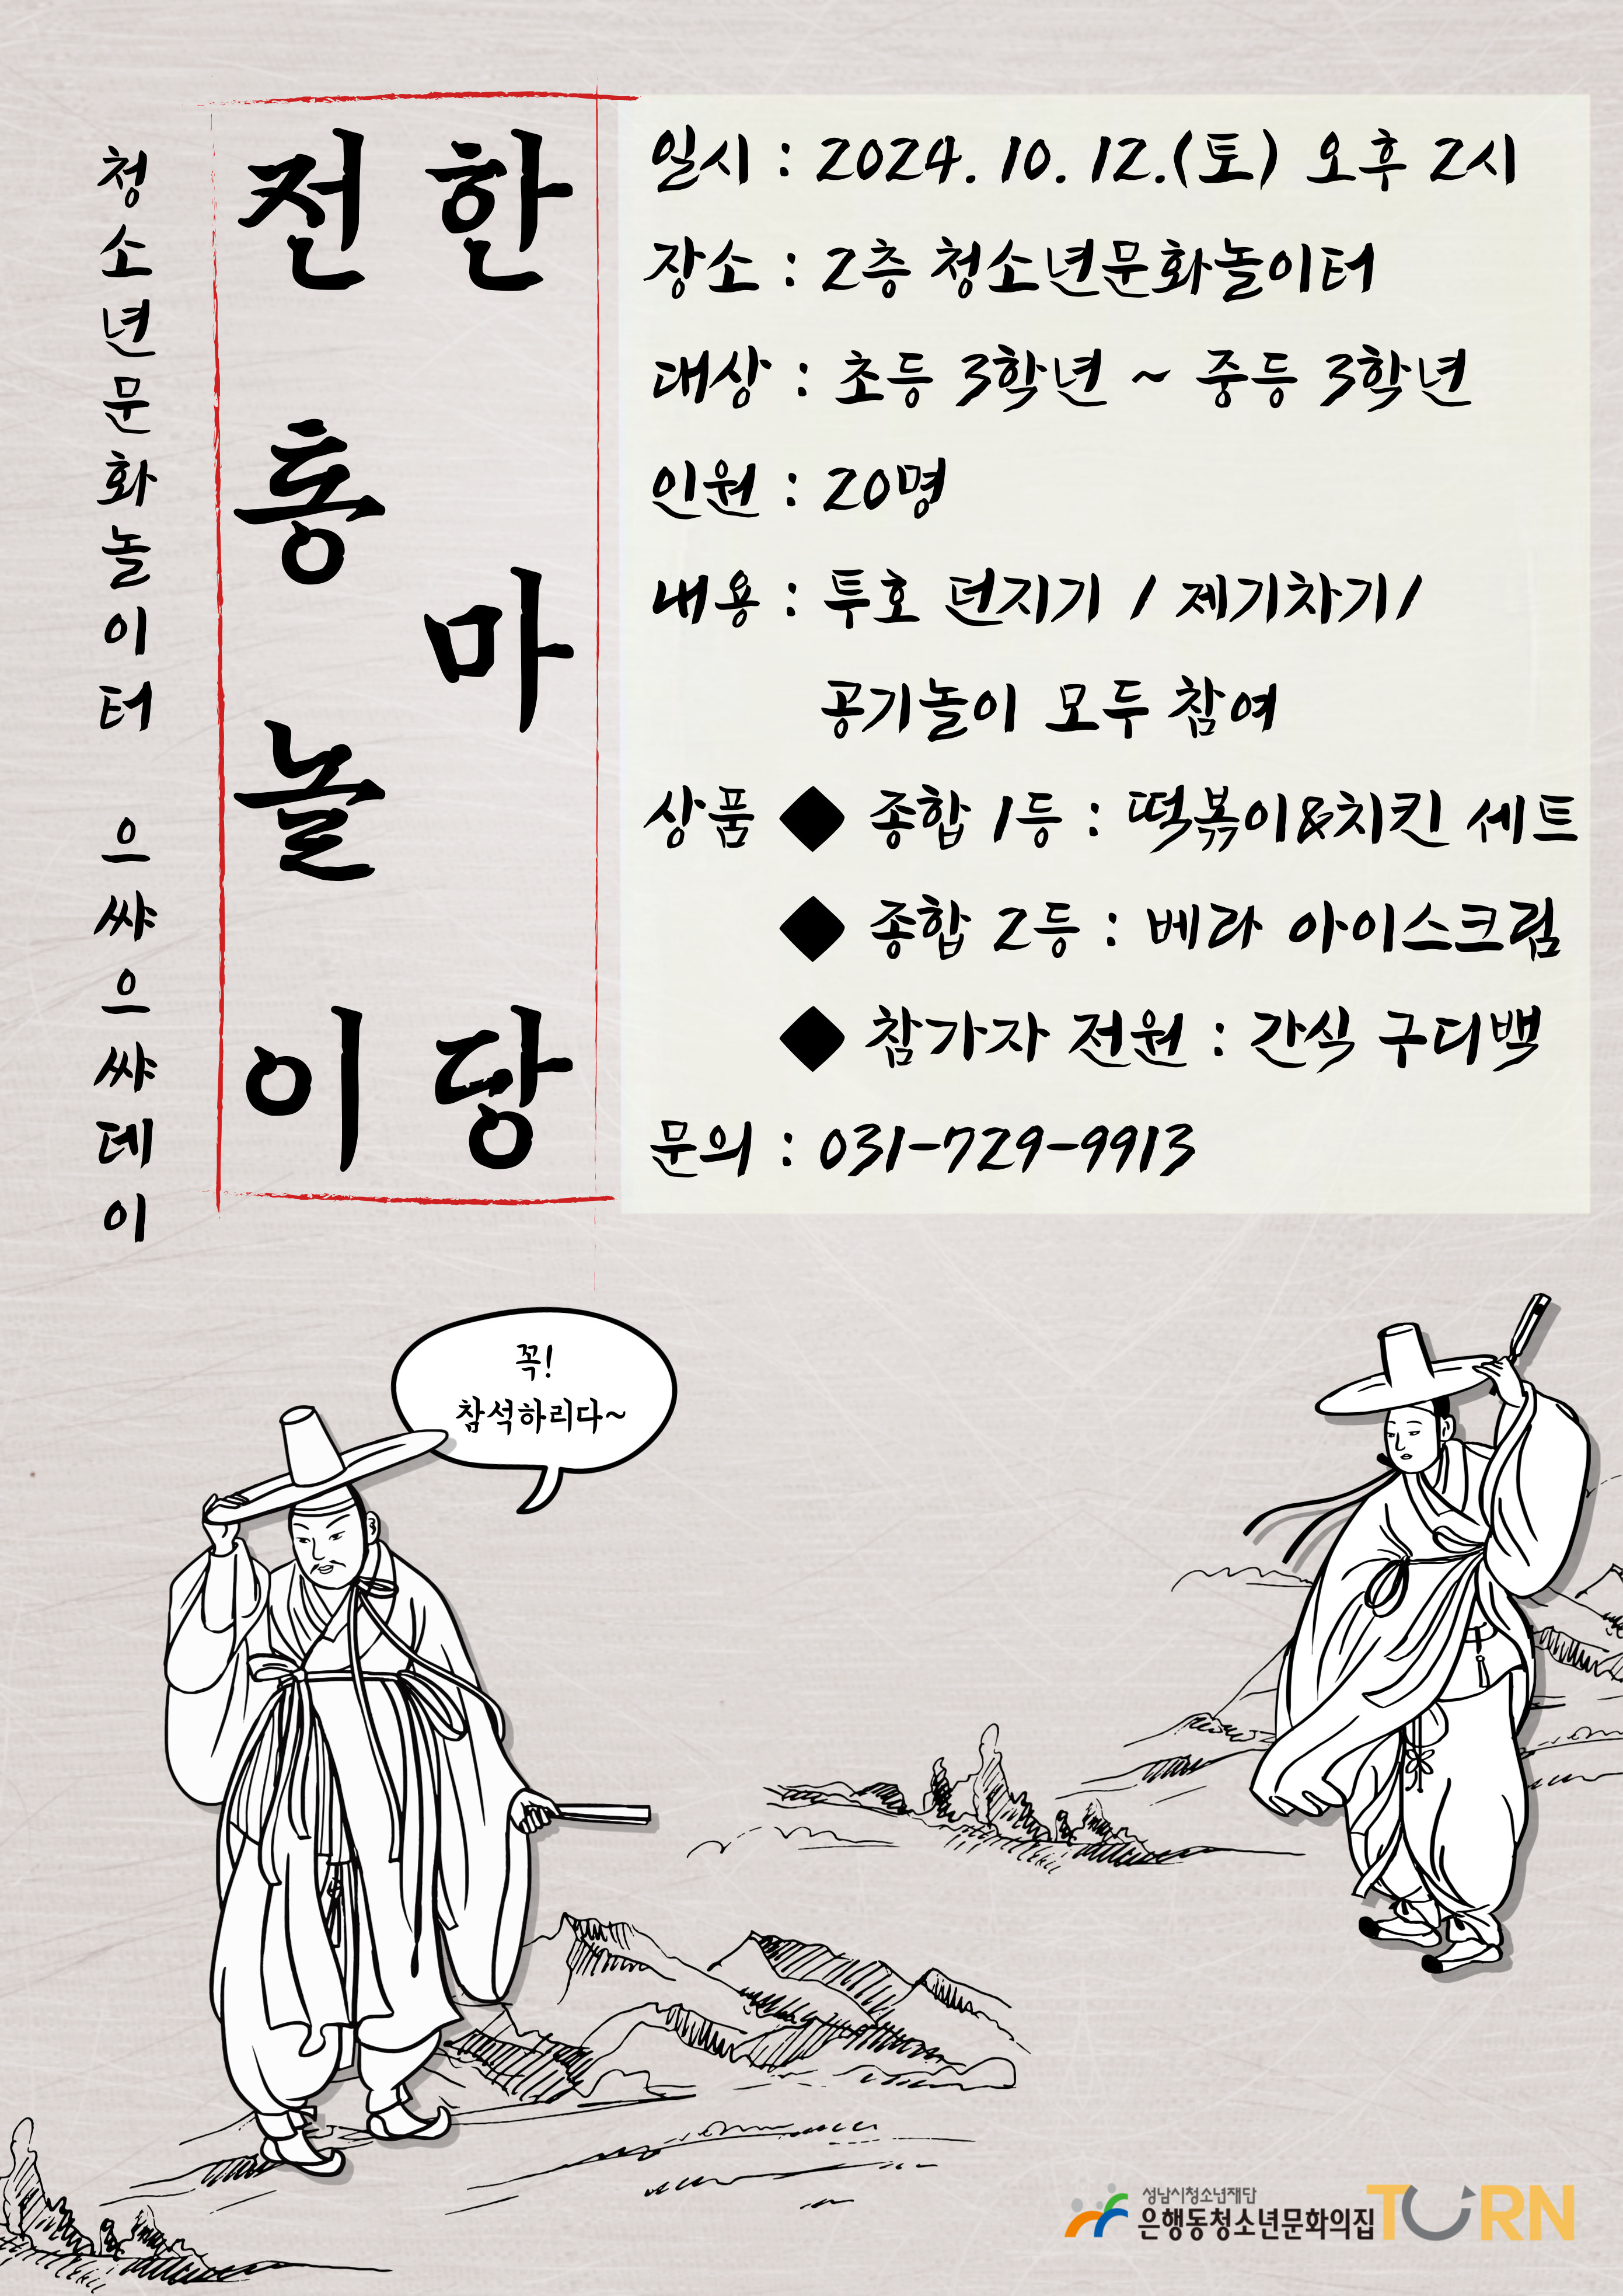 청소년문화놀이터 으쌰으쌰데이
전통놀이
한마당
일시 : 2024. 10. 12.(토) 오후 2시
장소 : 2층 청소년문화놀이터
대상 : 초등 3학년 ~ 중등 3학년
인원 : 20명
내용 : 투호 던지기 / 제기차기/
공기놀이 모두 참여
상품 ◆ 종합 1등 : 떡볶이&치킨 세트
◆ 종합 2등 : 베라 아이스크림
◆ 참가자 전원 : 간식 구디백
문의 : 031-729-9913
꼭!
참석하리다~
성남시청소년재단
은행동청소년문화의집
TURN